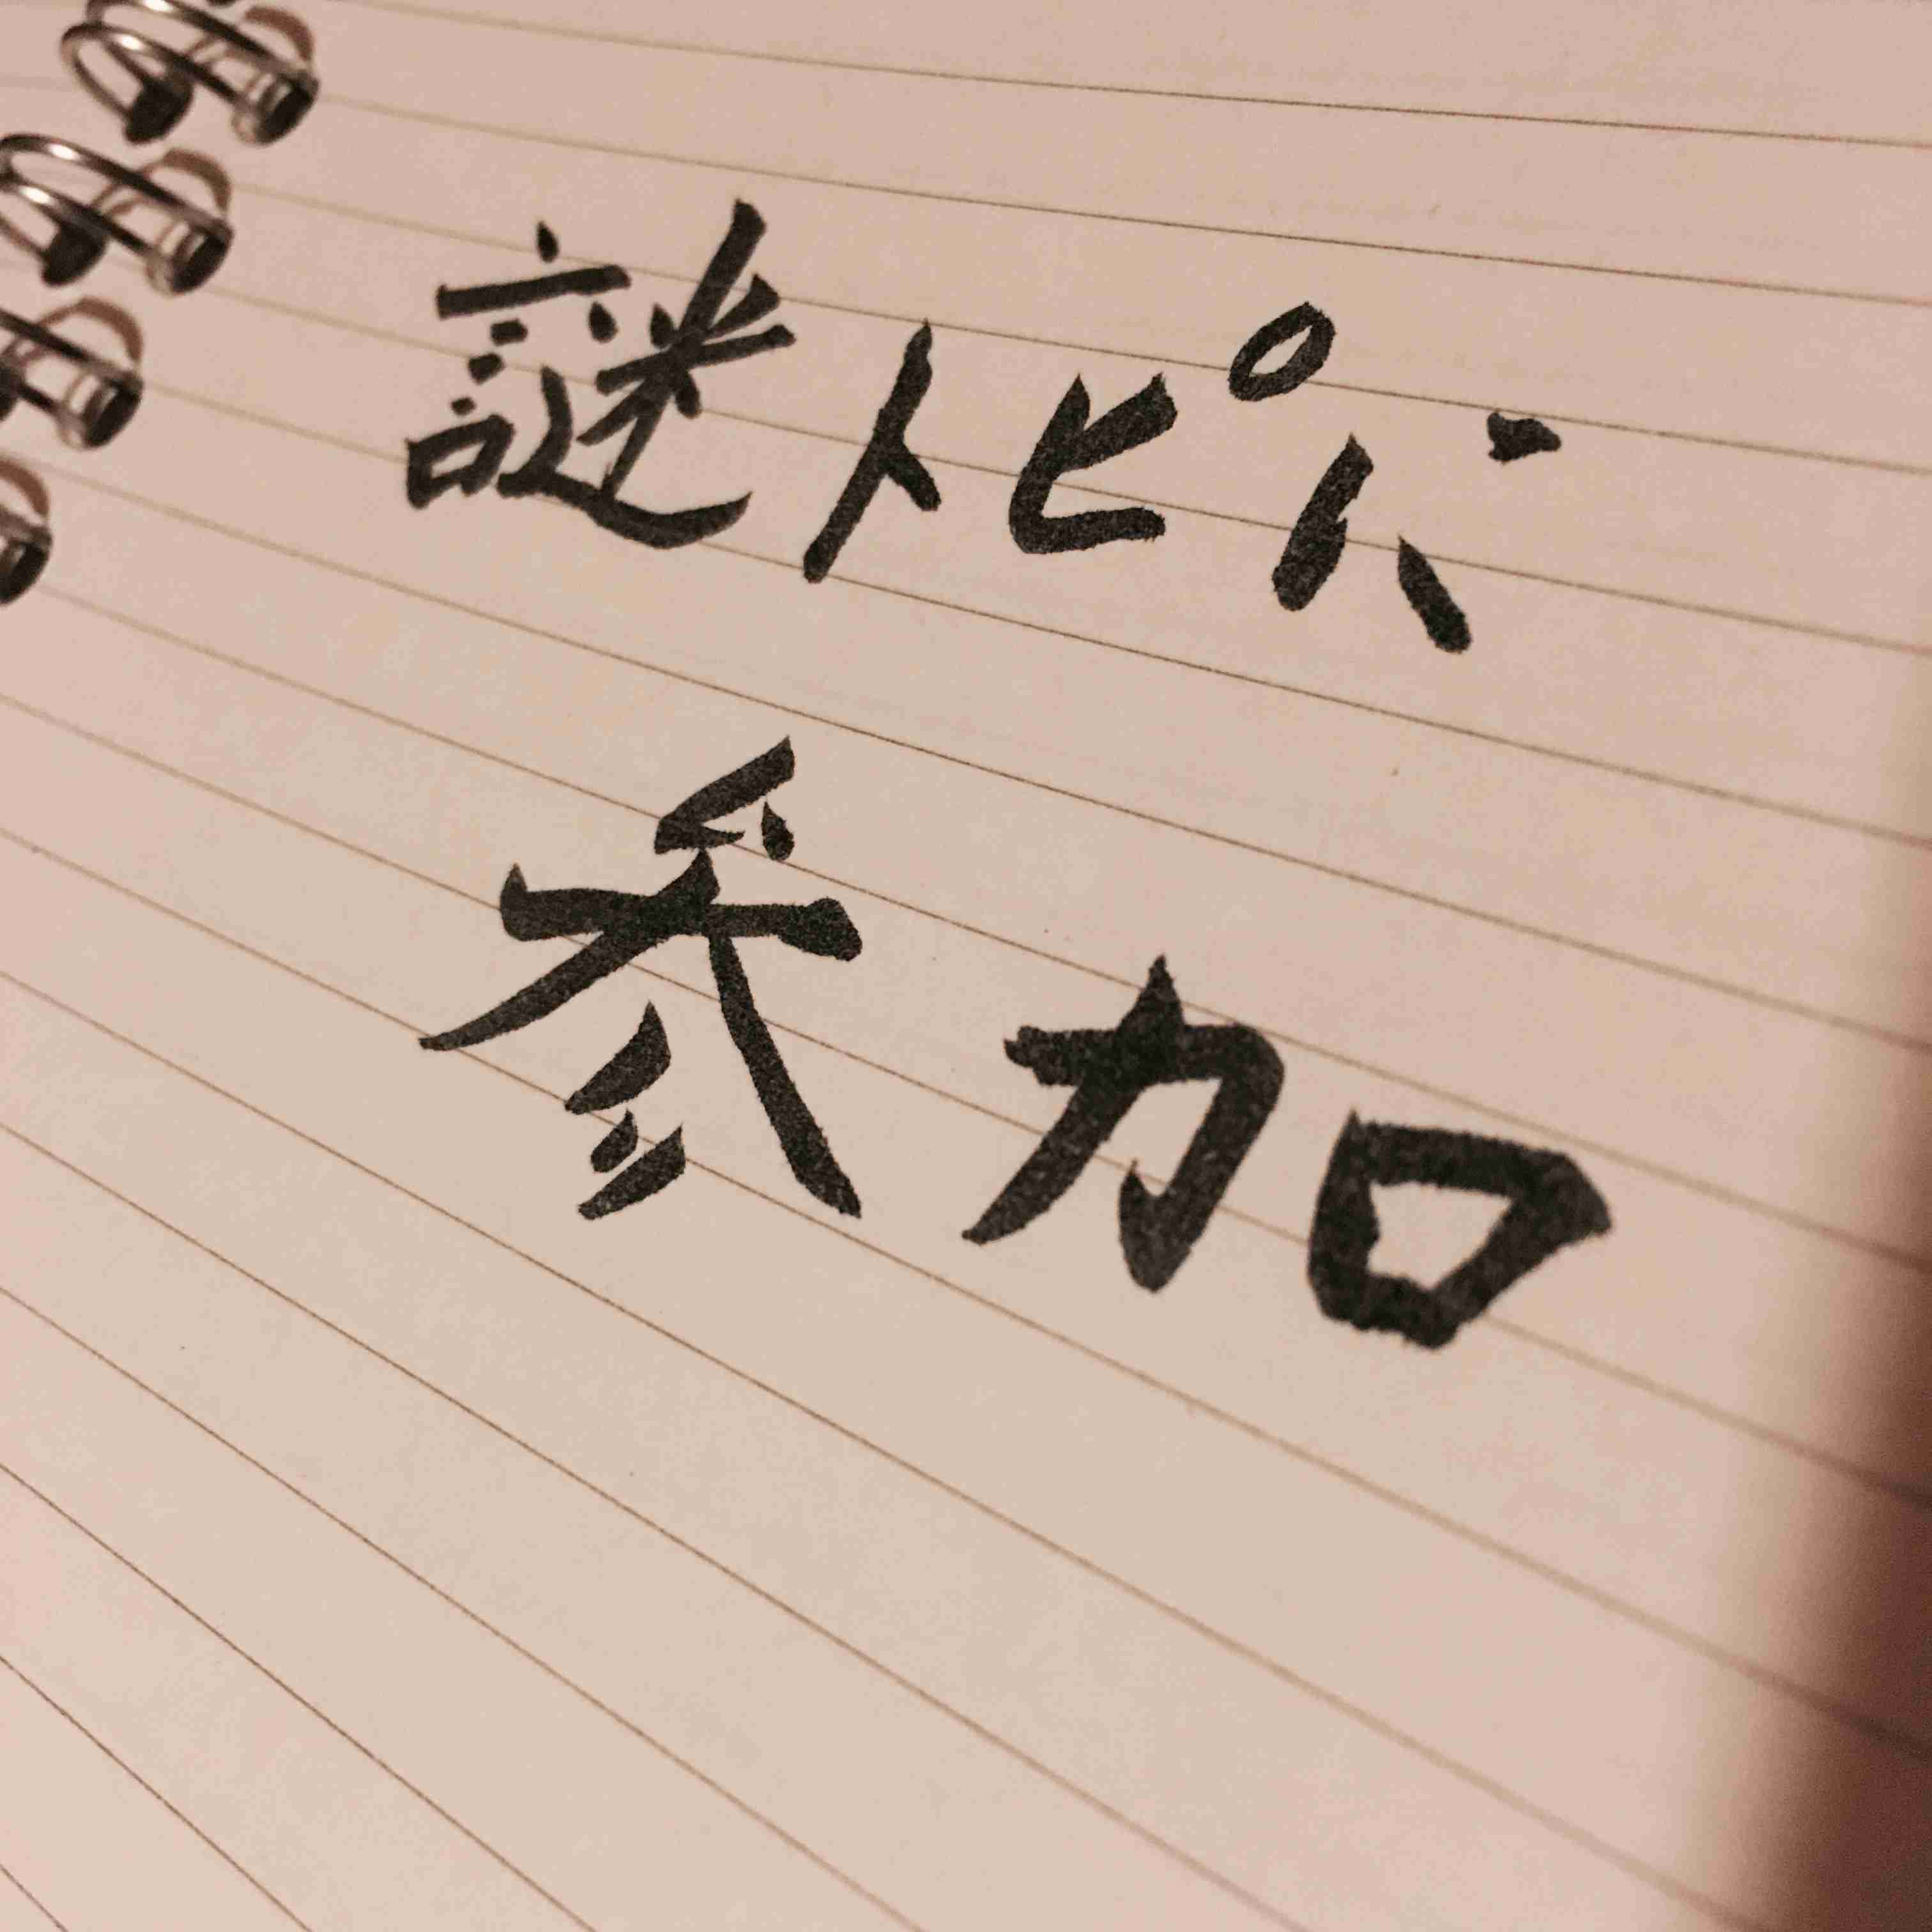 謎トピに
参加